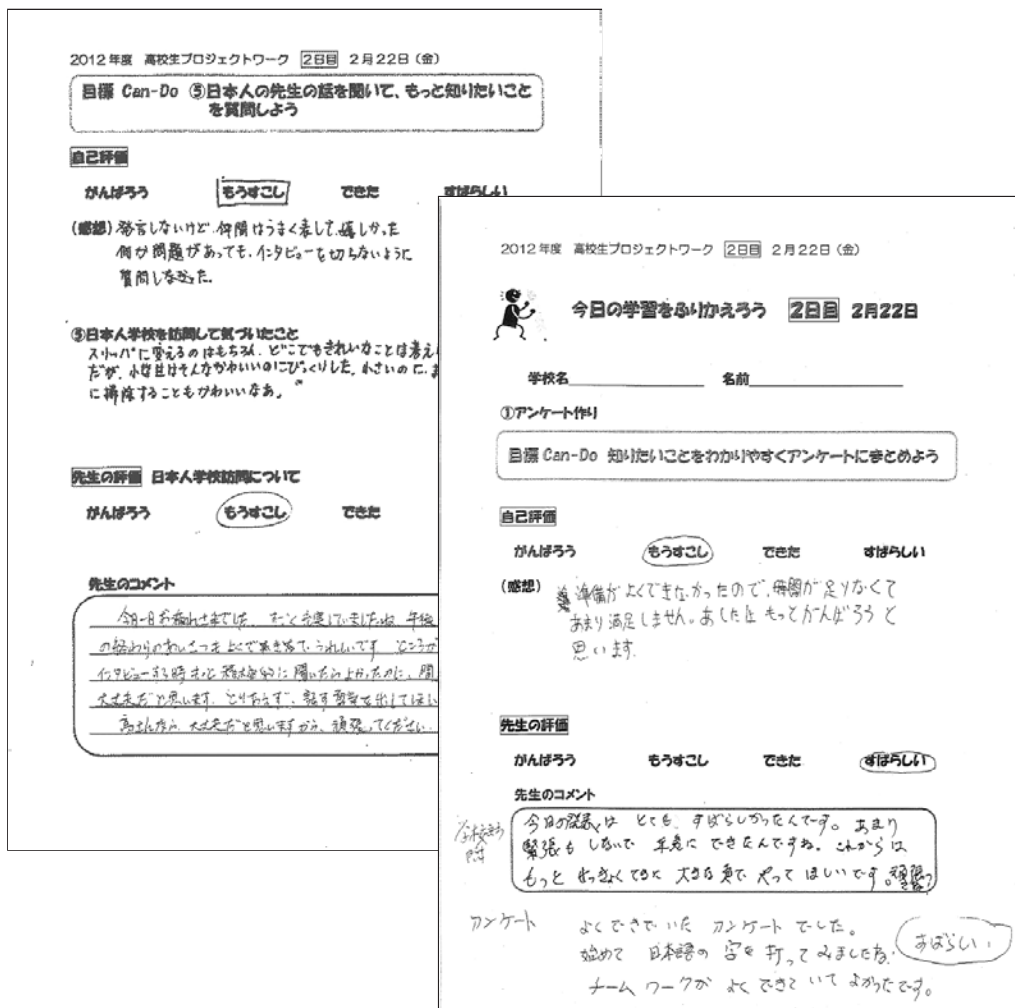 2012年度 高校生プロジェクトワーク 2日目 2月22日（金）
目標 Can-Do ⑤日本人の先生の話を聞いて、もっと知りたいこと
を質問しよう
自己評価
がんばろう もうすこし できた すばらしい
（感想）発言しないけど、仲間はうまく表して、嬉しかった
何か問題があっても、インタビューを切らないように
質問しなかった。
⑤日本人学校を訪問して気づいたこと
スリッパに変えるのはもちろん、どこでもきれいなことは考え
だが、小学生はそんなかわいいのにびっくりした。小さいのに、
に掃除することもかわいいなあ。
先生の評価 日本人学校訪問について
がんばろう もうすこし できた
先生のコメント
今日一日お疲れさまでした。 ずっと充実していましたね 午後
の終わりのあいさつもよくできて うれしいです ところが
インタビューする時もっと積極的に聞いたらよかったのに、
大丈夫だと思います。とりあえず、話す勇気を出してほしい
高さんなら、大丈夫だと思いますから、頑張ってください。
2012年度 高校生プロジェクトワーク 2日目 2月22日（金）
今日の学習をふりかえろう 2日目 2月22日
学校名 名前
①アンケート作り
目標 Can-Do 知りたいことをわかりやすくアンケートにまとめよう
自己評価
がんばろう もうすこし できた すばらしい
（感想） 準備がよくできなかったので、時間が足りなくて
あまり満足しません。あしたは もっとがんばろうと
思います。
先生の評価
がんばろう もうすこし できた すばらしい
先生のコメント
学校訪問
今日の発表は とても すばらしかったんです。あまり
緊張も しないで 上手に できたんですね。これからは
もっと せっきょくてきに 大きな声で やって ほしいです。頑張って
アンケート よくできていた アンケート でした。
始めて 日本語の 字を 打って みましたね。 すばらしい
チームワークが よく できて いて よかったです。